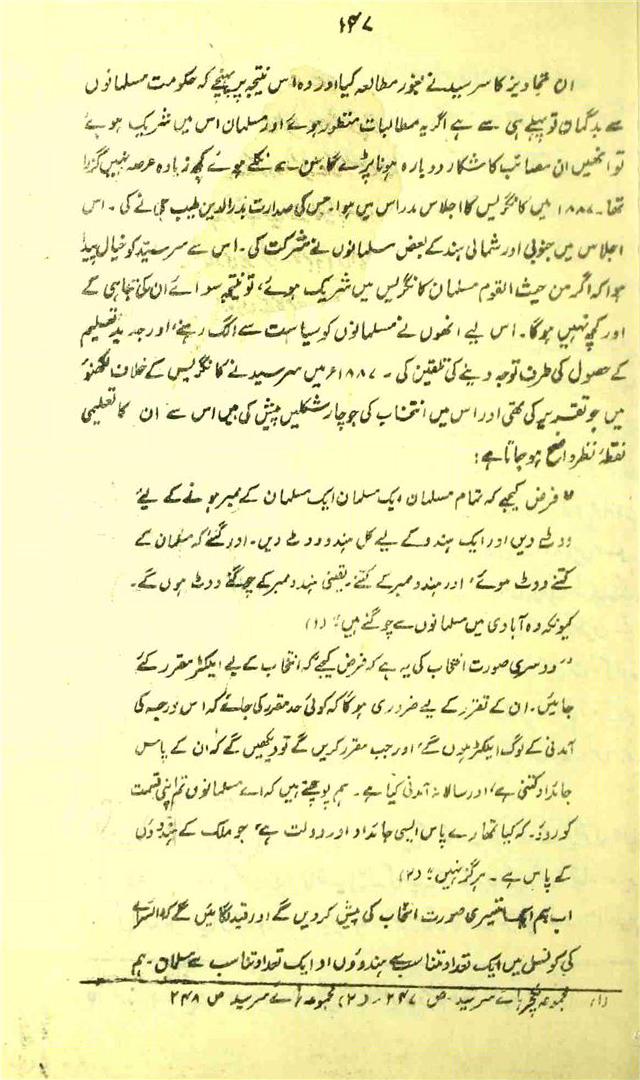 ۱۴۷
ان تجاویز کا سرسید نے بغور مطالعہ کیا اور وہ اس نتیجہ پر پہنچے کہ حکومت مسلمانوں
سے بدگمان تو پہلے ہی سے ہے اگر یہ مطالبات منظور ہوئے اور مسلمان اس میں شریک ہوئے
تو انھیں ان مصائب کا شکار دوبارہ ہونا پڑے گا، جن سے نکلے ہوئے کچھ زیادہ عرصہ نہیں گزرا
تھا۔ ۱۸۸۷ میں کانگریس کا اجلاس مدراس میں ہوا۔ جس کی صدارت بدرالدین طیب جی نے کی۔ اس
اجلاس میں جنوبی اور شمالی ہند کے بعض مسلمانوں نے شرکت کی۔ اس سے سرسید کو خیال پیدا
ہوا کہ اگر من حیث القوم مسلمان کانگریس میں شریک ہوئے، تو نتیجہ سوائے ان کی تباہی کے
اور کچھ نہیں ہوگا۔ اس لیے انھوں نے مسلمانوں کو سیاست سے الگ رہنے، اور جدید تعلیم
کے حصول کی طرف توجہ دینے کی تلقین کی۔ ۱۸۸۷ء میں سرسید نے کانگریس کے خلاف لکھنؤ
میں جو تقریر کی تھی اور اس میں انتخاب کی جو چار شکلیں پیش کی ہیں اس سے ان کا تعلیمی
نقطۂ نظر واضح ہو جاتا ہے:
"فرض کیجیے کہ تمام مسلمان ایک مسلمان ایک مسلمان کے ممبر ہونے کے لیے
ووٹ دیں اور ایک ہندو کے لیے کل ہندو ووٹ دیں۔ اور گنئے کہ مسلمان کے
کتنے ووٹ ہوئے، اور ہندو ممبر کے کتنے۔ یعنی ہندو ممبر کے چوگنے ووٹ ہوں گے۔
کیونکہ وہ آبادی میں مسلمانوں سے چوگنے ہیں" (۱)
"دوسری صورت انتخاب کی یہ ہے کہ فرض کیجیے کہ انتخاب کے لیے الیکٹر مقرر کئے
جائیں۔ ان کے تقرر کے لیے ضروری ہوگا کہ کوئی حد مقرر کی جائے کہ اس درجہ کی
آمدنی کے لوگ الیکٹر ہوں گے، اور جب مقرر کریں گے تو دیکھیں گے کہ ان کے پاس
جائداد کتنی ہے، اور سالانہ آمدنی کیا ہے۔ ہم پوچھتے ہیں کہ اے مسلمانوں تم اپنی قسمت
کو روؤ۔ کہ کیا تمھارے پاس ایسی جائداد اور دولت ہے، جو ملک کے ہندوؤں
کے پاس ہے۔ ہرگز نہیں" (۲)
اب ہم ایک تیسری صورت انتخاب کی پیش کر دیں گے اور قید لگائیں گے کہ وائسرائے
کی کونسل میں ایک تعداد تناسب سے ہندوؤں اور ایک تعداد تناسب سے مسلمان۔ ہم
(۱) مجموعہ لکچر ہائے سرسید۔ ص ۲۴۷۔ (۲) مجموعہ ہائے سرسید ص ۲۴۸